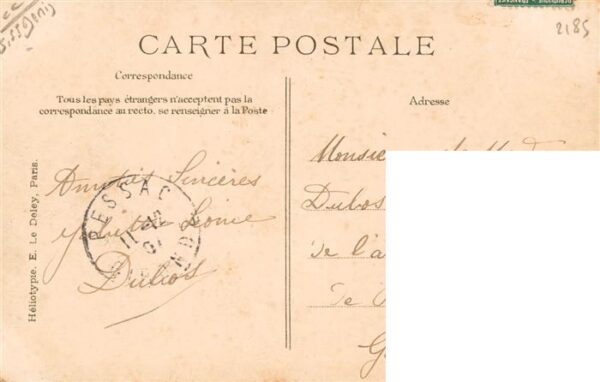 2185
CARTE POSTALE
Correspondance
Tous les pays étrangers n'acceptent pas la
correspondance au recto. se renseigner à la Poste
Adresse
Héliotypie. E. Le Deley, Paris.
Amitiés Sincères
Dubois
PESSAC
11
07
Monsie
Dubos
de l'a
de
G